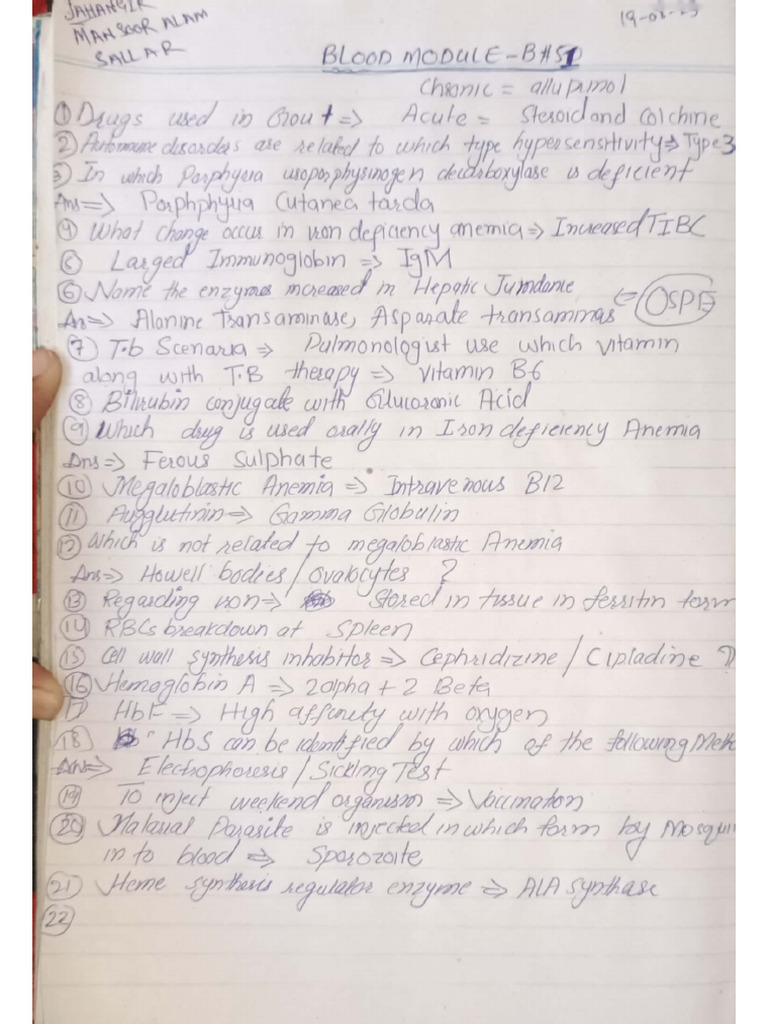 JAHANGIR
MANSOOR ALAM
SALLAR
19-02-23
BLOOD MODULE - BHS1
Chronic = allupimol
① Drugs used in Gout => Acute = Steroid and Colchine
② Autoimmune disorders are related to which type hypersensitivity => Type 3
③ In which Porphyria uroporphysinogen decarboxylase is deficient
Ans => Porphphyria Cutanea tarda
④ What change occur in iron deficiency anemia => Increased TIBC
⑤ Larged Immunoglobin => IgM
⑥ Name the enzymes increased in Hepatic Jundance
Ans => Alanine Transaminase, Asparate transaminas <= OSPE
⑦ T.b Scenaria => Pulmonologist use which vitamin
along with T.B therapy => vitamin B-6
⑧ Bilirubin conjugate with Glucoronic Acid
⑨ Which drug is used orally in Iron deficiency Anemia
Ans => Ferous Sulphate
⑩ Megaloblastic Anemia => Intravenous B12
⑪ Augglutinin => Gamma Globulin
⑫ Which is not related to megaloblastic Anemia
Ans => Howell bodies / ovalocytes ?
⑬ Regarding iron => Stored in tissue in ferritin form
⑭ RBCs breakdown at spleen
⑮ Cell wall synthesis inhabitor => Cephridizine / Cipladine ?
⑯ Hemoglobin A => 2 alpha + 2 Beta
17 HbF => High affinity with oxygen
⑱ HbS can be identified by which of the following Meth
Ans => Electrophoresis / Sickling Test
⑲ To inject weekend organism => Vaccination
⑳ Malarial Parasite is injected in which form by Mosqui
in to blood => Sporozoite
㉑ Heme synthesis regulator enzyme => ALA synthase
㉒